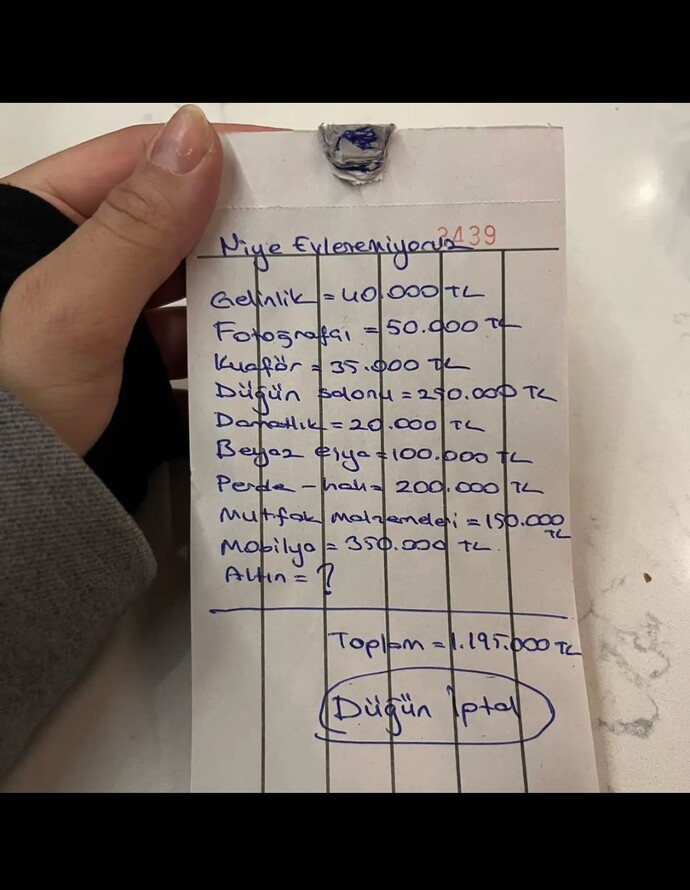 3439
Niye Evleremiyoruz
Gelinlik = 40.000 TL
Fotoğrafçı = 50.000 TL
Kuaför = 35.000 TL
Düğün salonu = 250.000 TL
Damatlık = 20.000 TL
Beyaz eşya = 100.000 TL
Perde - halı = 200.000 TL
Mutfak malzemeleri = 150.000 TL
Mobilya = 350.000 TL
Altın = ?
Toplam = 1.195.000 TL
Düğün İptal